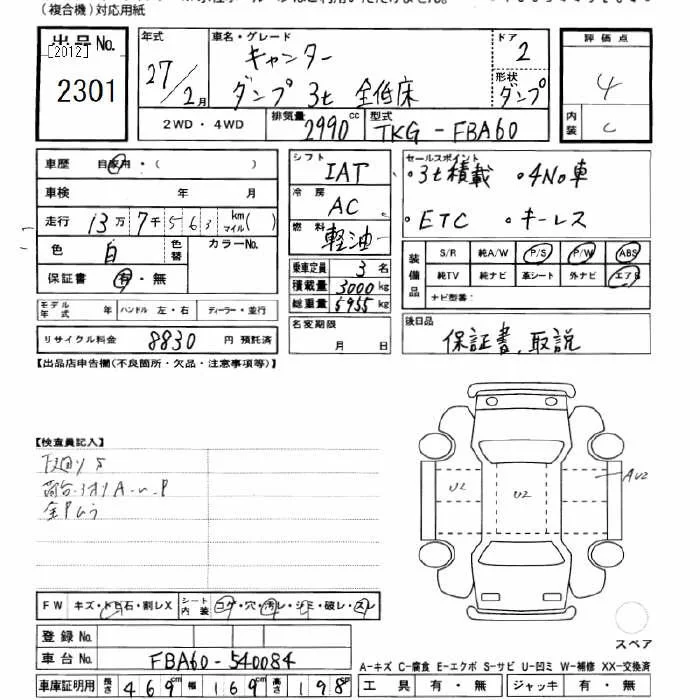 (複合機)対応用紙
出品No.
[2012]
2301
年式 27/2月
車名・グレード キャンター
ダンプ 3t 全低床
ドア 2
形状 ダンプ
評価点 4
内装 C
2WD・4WD
排気量 2990 cc
型式 TKG-FBA60
車歴 自家用・( )
車検 年 月
走行 13万7千563 km マイル( )
色 白 色替
カラーNo.
保証書 有・無
モデル年式 年 ハンドル 左・右 ディーラー・並行
リサイクル料金 8830 円 預託済
シフト IAT
冷房 AC
燃料 軽油
乗車定員 3名
積載量 3000 kg
総重量 5955 kg
名変期限 月 日
セールスポイント
・3t積載 ・4No車
・ETC ・キーレス
装備品 S/R 純A/W P/S P/W ABS
純TV 純ナビ 革シート 外ナビ エアB
ナビ型番:
後日品
保証書、取説
【出品店申告欄(不良箇所・欠品・注意事項等)】
【検査員記入】
下回りS
U2 U2 AU2
FW キズ・トビ石・割レX
シート内装 コゲ・穴・汚レ・シミ・破レ・スレ
登録No.
車台No. FBA60-540084
スペア
A-キズ C-腐食 E-エクボ S-サビ U-凹ミ W-補修 XX-交換済
車庫証明用 長さ 469 幅 169 高さ 198
工具 有・無 ジャッキ 有・無